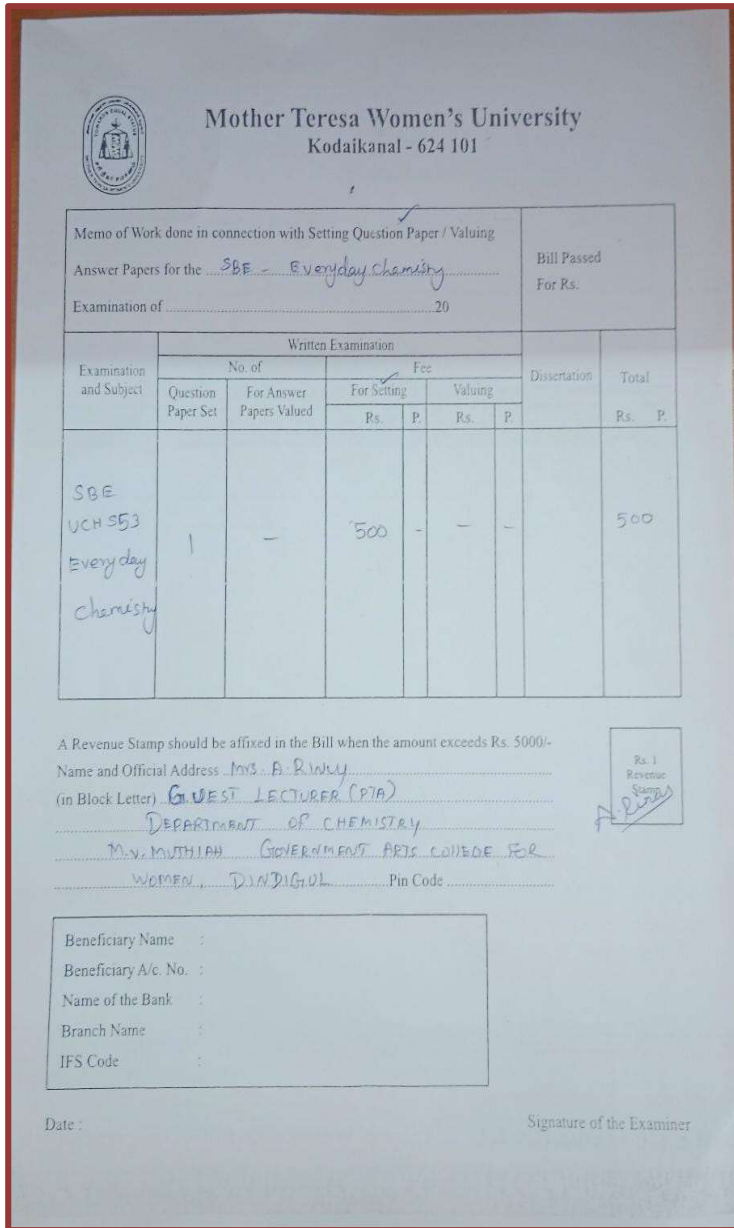 Mother Teresa Women's University
Kodaikanal - 624 101
Memo of Work done in connection with Setting Question Paper / Valuing
Answer Papers for the SBE - Everyday Chemistry
Examination of 20
Bill Passed
For Rs.
Examination
and Subject
Written Examination
No. of
Fee
Question
Paper Set
For Answer
Papers Valued
For Setting
Valuing
Rs. P. Rs. P.
Dissertation
Total
Rs. P.
SBE
UCHS53
Everyday
Chemistry
1 - 500 - - - 500
A Revenue Stamp should be affixed in the Bill when the amount exceeds Rs. 5000/-
Name and Official Address Mrs. A. RINCY
(in Block Letter) GUEST LECTURER (PTA)
DEPARTMENT OF CHEMISTRY
M.V. MUTHIAH GOVERNMENT ARTS COLLEGE FOR
WOMEN, DINDIGUL Pin Code
Rs. 1
Revenue
Stamp
Beneficiary Name :
Beneficiary A/c. No. :
Name of the Bank :
Branch Name :
IFS Code :
Date :
Signature of the Examiner